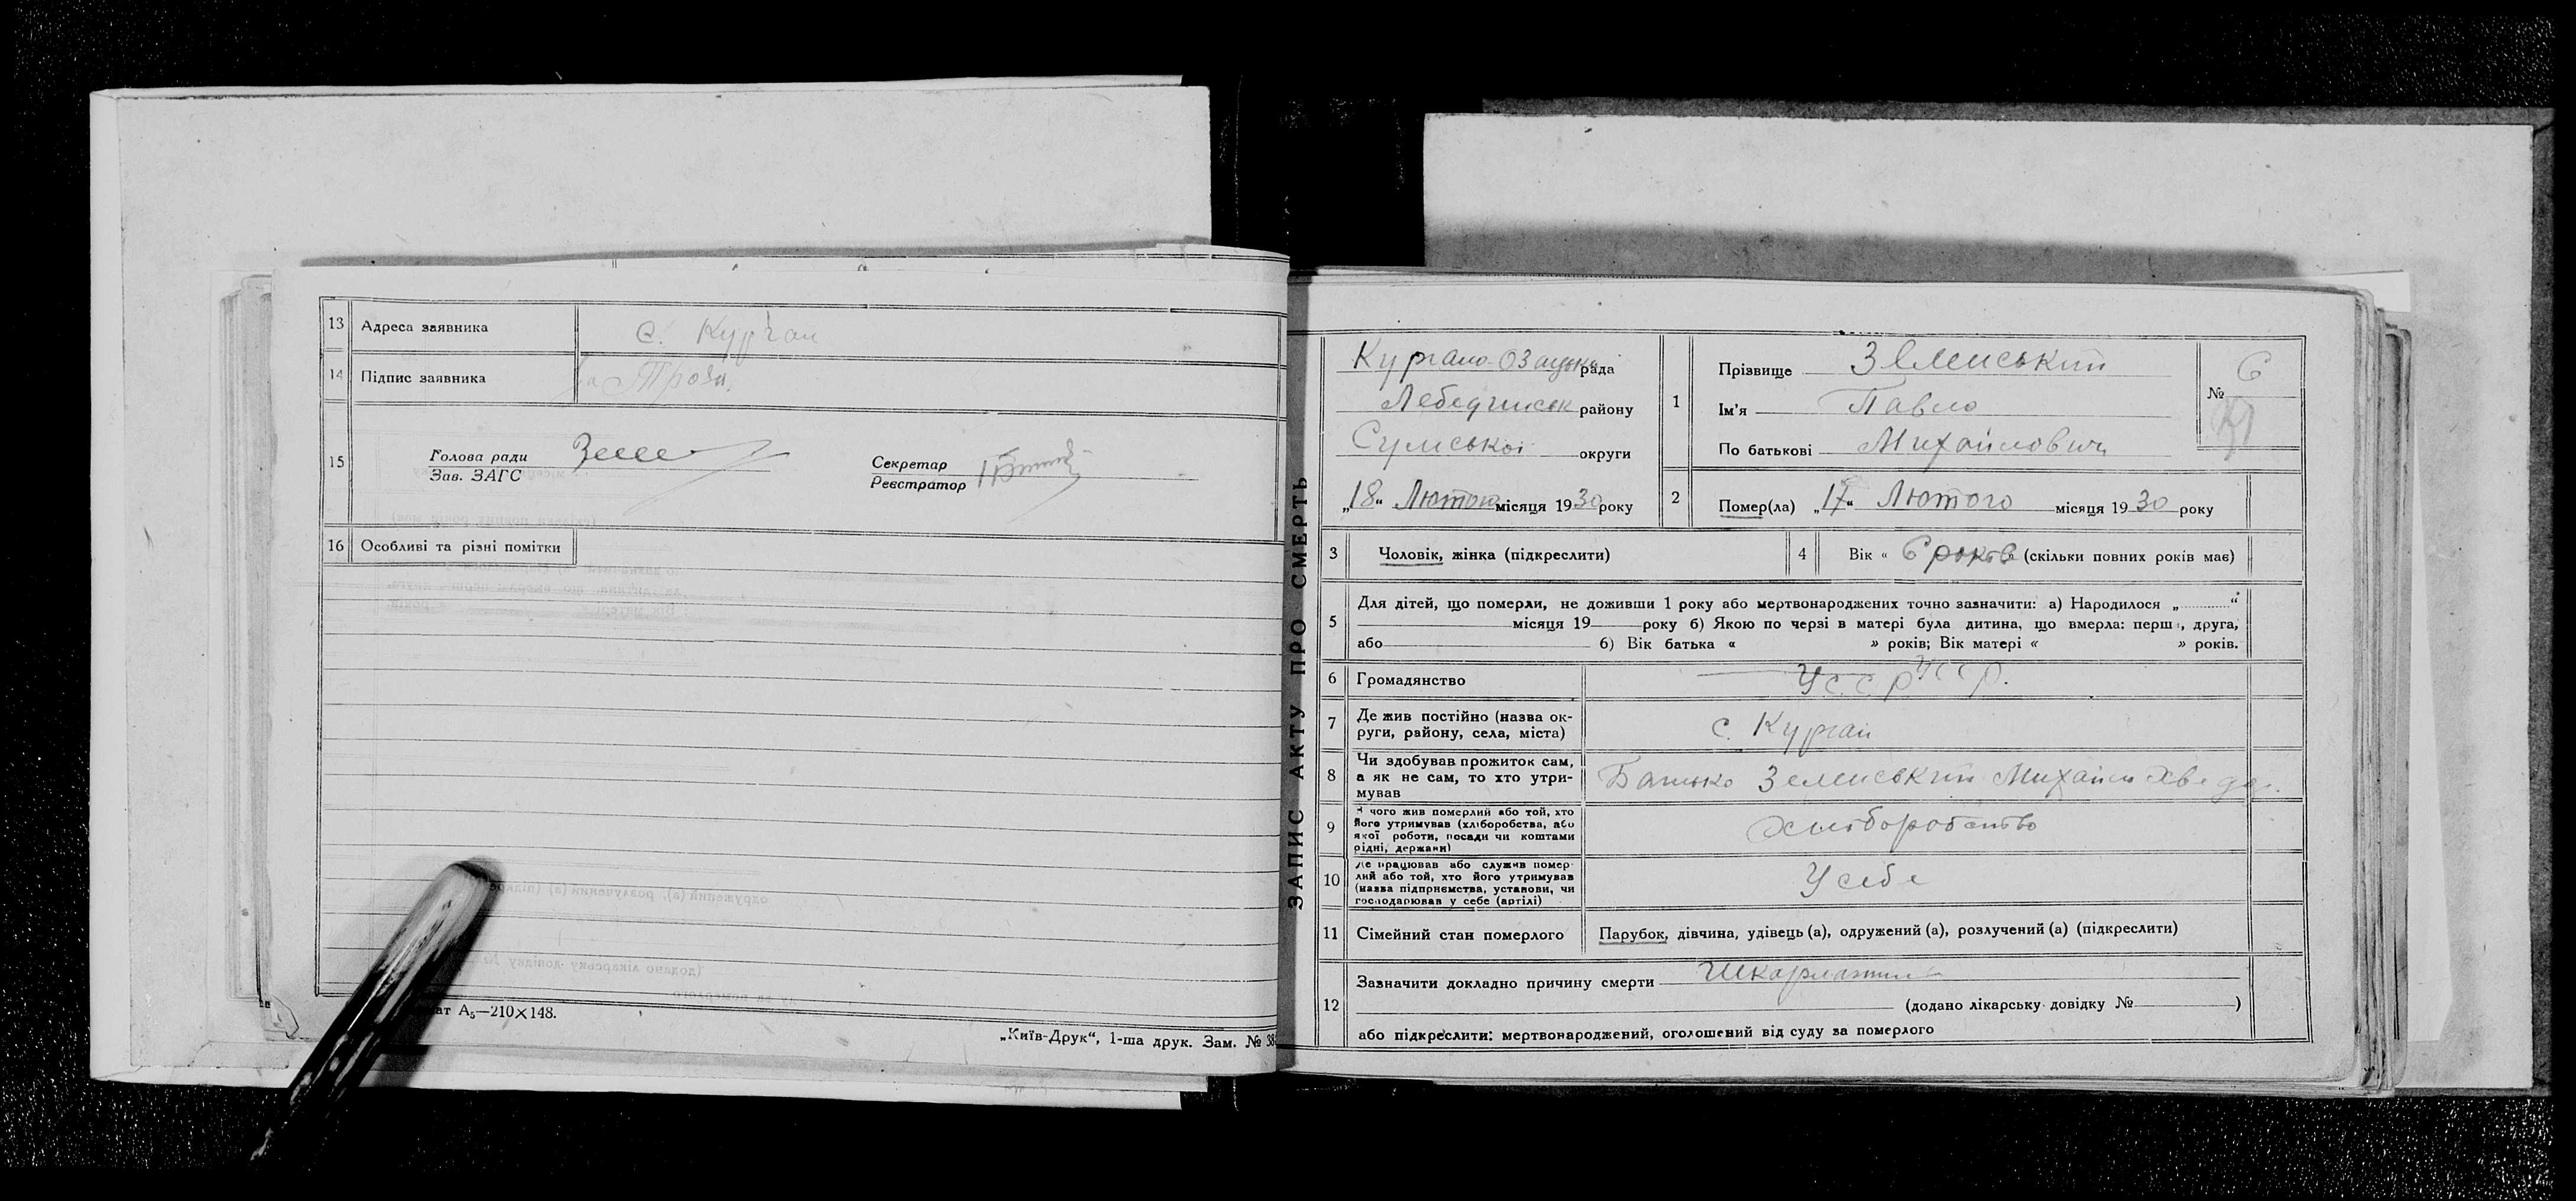 13 Адреса заявника с. Курган
14 Підпис заявника
15 Голова ради
Зав. ЗАГС
Секретар
Реєстратор
16 Особливі та різні помітки
ат А₅—210×148.
„Київ-Друк“, 1-ша друк. Зам. № 38
ЗАПИС АКТУ ПРО СМЕРТЬ
Кургано-Озацька рада
Лебединськ району
Сумської округи
„18“ Лютого місяця 1930 року
1 Прізвище Земський
Ім'я Павло
По батькові Михайлович
№ 6
2 Помер(ла) „17“ Лютого місяця 1930 року
3 Чоловік, жінка (підкреслити)
4 Вік « 6 років » (скільки повних років має)
5 Для дітей, що померли, не доживши 1 року або мертвонароджених точно зазначити: а) Народилося „ “
місяця 19 року б) Якою по черзі в матері була дитина, що вмерла: перш , друга,
або б) Вік батька « » років; Вік матері « » років.
6 Громадянство УССР УССР.
7 Де жив постійно (назва ок-
руги, району, села, міста) с. Курган
8 Чи здобував прожиток сам,
а як не сам, то хто утри-
мував Батько Земський Михайло Хведор.
9 З чого жив померлий або той, хто
його утримував (хліборобства, або
якої роботи, посади чи коштами
рідні, держави) Хліборобство
10 Де працював або служив помер-
лий або той, хто його утримував
(назва підприємства, установи, чи
господарював у себе (артілі) У себе
11 Сімейний стан померлого Парубок, дівчина, удівець (а), одружений (а), розлучений (а) (підкреслити)
12 Зазначити докладно причину смерти Шкарлатина
(додано лікарську довідку № )
або підкреслити: мертвонароджений, оголошений від суду за померлого